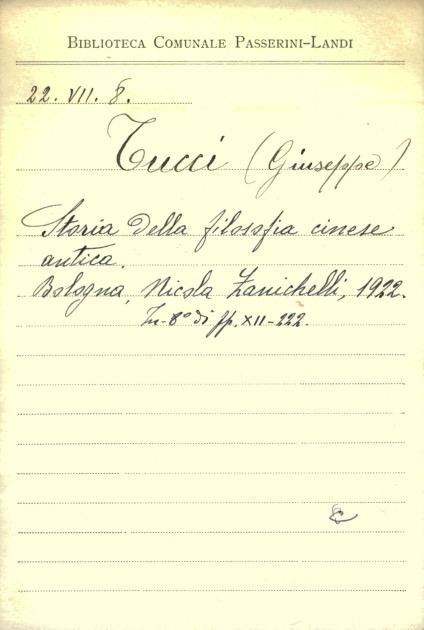 BIBLIOTECA COMUNALE PASSERINI-LANDI
22. VII. 8.
Tucci (Giuseppe)
Storia della filosofia cinese
antica.
Bologna, Nicola Zanichelli, 1922.
In-8° di pp. XII-222.